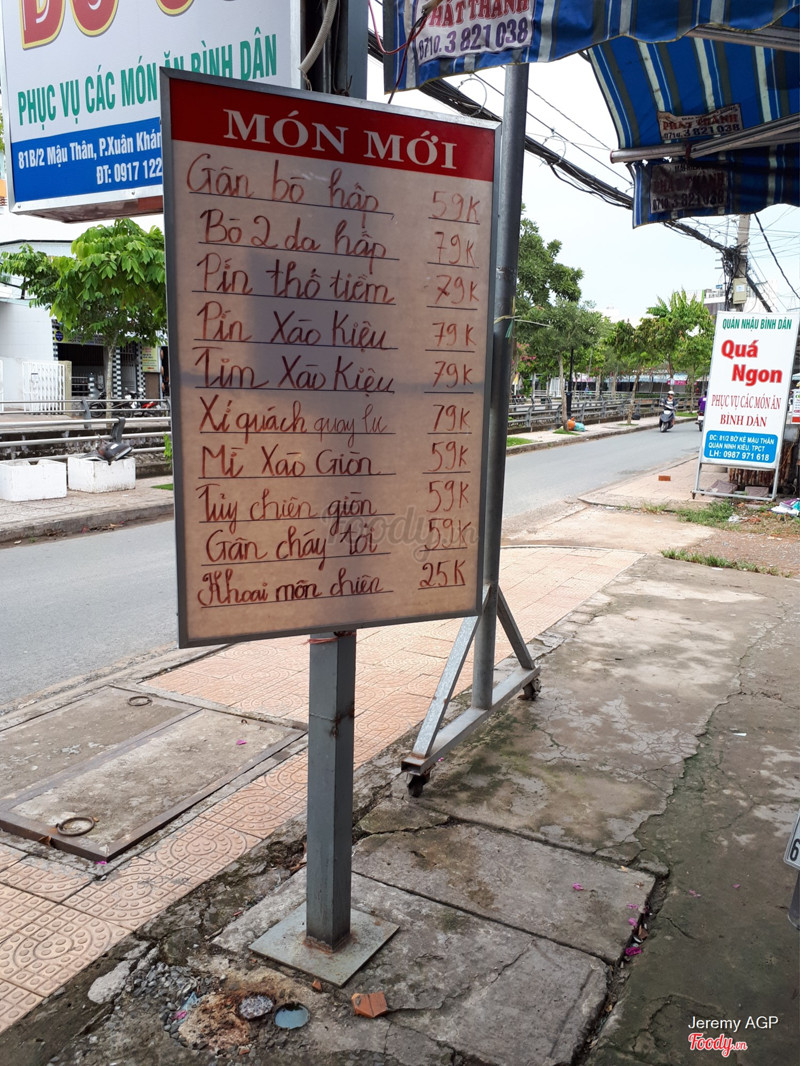 PHỤC VỤ CÁC MÓN ĂN BÌNH DÂN
81B/2 Mậu Thân, P.Xuân Khán
ĐT: 0917 122
PHÁT THÀNH
0710.3 821 038
PHÁT THÀNH
0710.3 821 038
MÓN MỚI
Gân bò hấp 59K
Bò 2 da hấp 79K
Pín thố tiềm 79K
Pín Xào Kiệu 79K
Tim Xào Kiệu 79K
Xí quách quay lu 79K
Mì Xào Giòn 59K
Tủy chiên giòn 59K
Gân cháy tỏi 59K
Khoai môn chiên 25K
QUÁN NHẬU BÌNH DÂN
Quá
Ngon
PHỤC VỤ CÁC MÓN ĂN
BÌNH DÂN
ĐC: 81/2 BỜ KÈ MẬU THÂN
QUẬN NINH KIỀU, TPCT
LH: 0987 971 618
Foody.vn
Jeremy AGP
Foody.vn